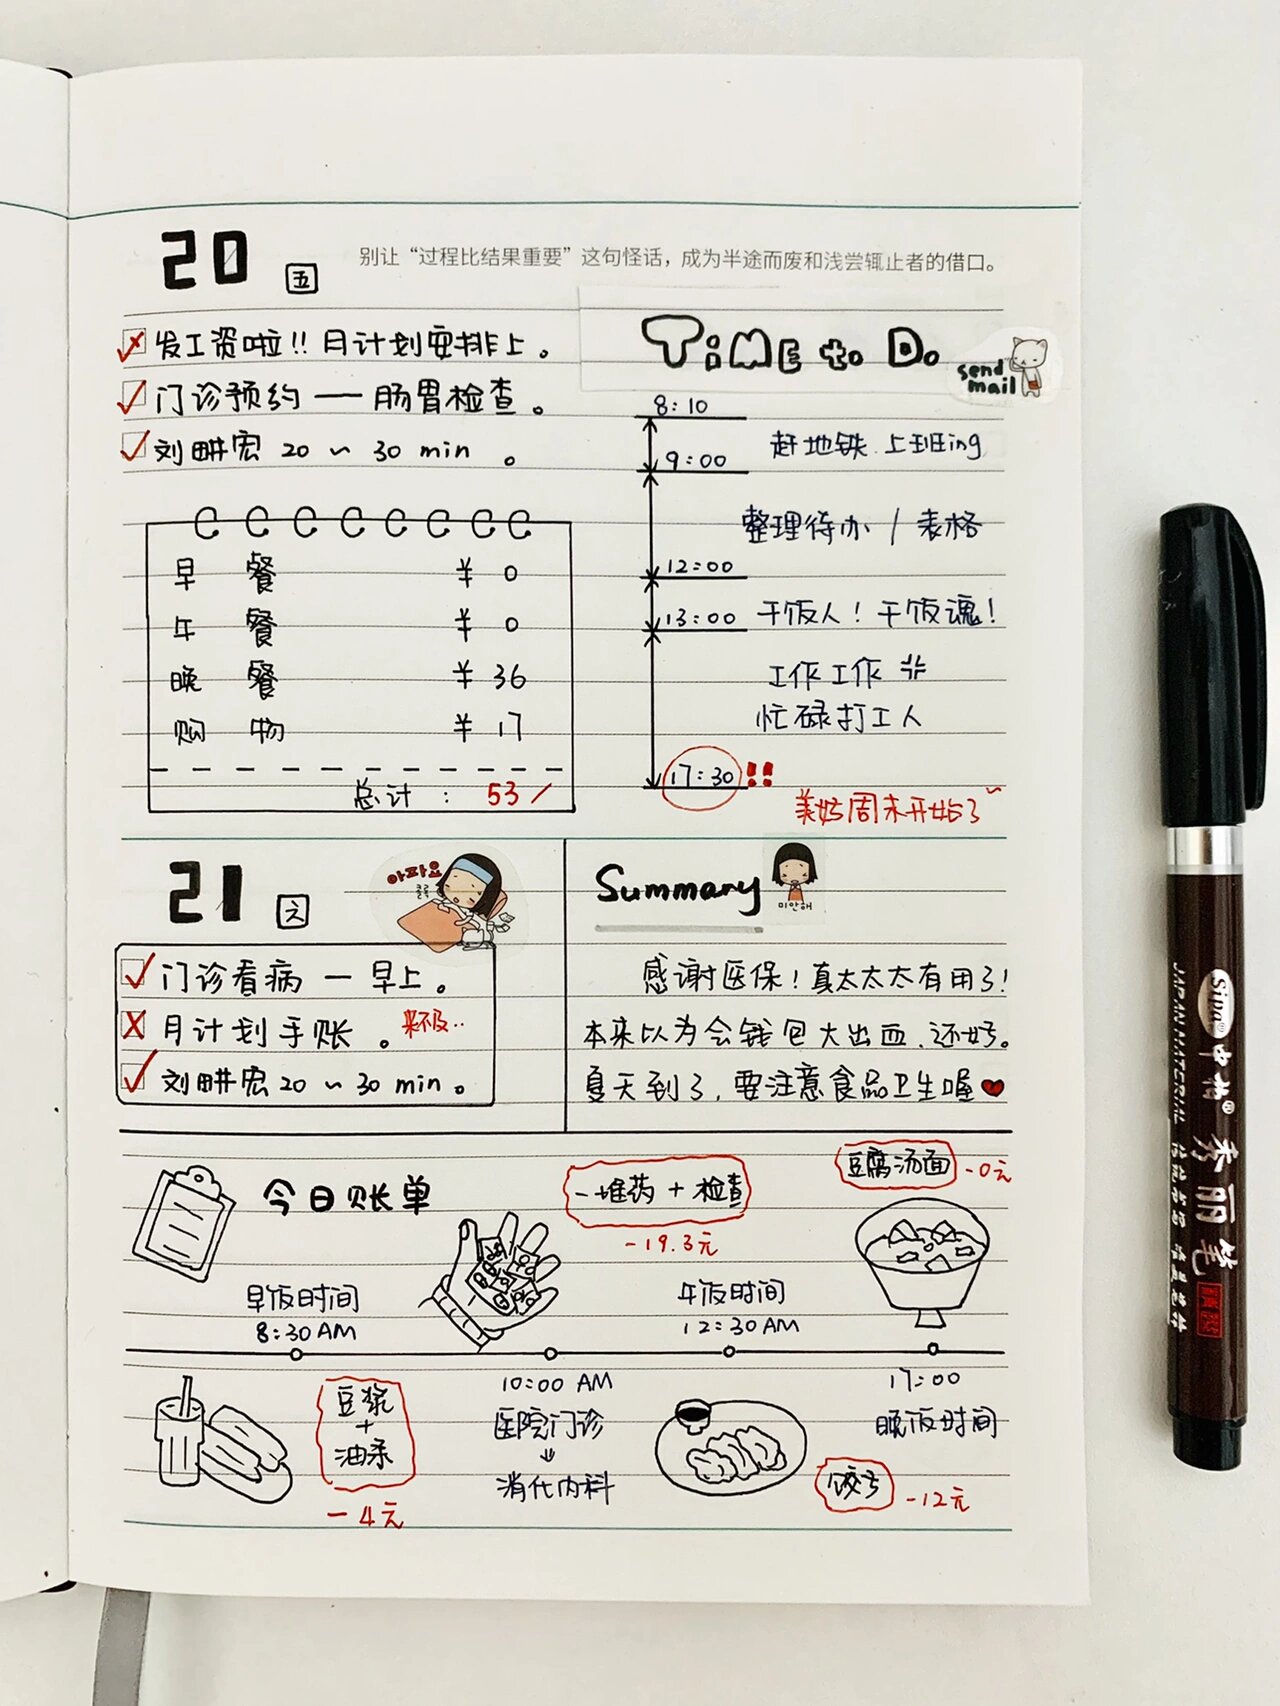 20 五
别让“过程比结果重要”这句怪话，成为半途而废和浅尝辄止者的借口。
发工资啦!! 月计划安排上。
门诊预约 — 肠胃检查。
刘畊宏 20 ~ 30 min 。
早 餐 ¥ 0
午 餐 ¥ 0
晚 餐 ¥ 36
购 物 ¥ 17
总计 : 53/
TiME to Do
send
mail
8:10
赶地铁.上班ing
9:00
整理待办 / 表格
12:00
干饭人! 干饭魂!
13:00
工作工作
忙碌打工人
17:30 !!
美好周末开始了~
21 六
아파요
콜록
门诊看病 — 早上。
月计划手账 。来不及..
刘畊宏 20 ~ 30 min 。
Summary
미안해
感谢医保! 真太太太有用了!
本来以为会钱包大出血.还好。
夏天到了,要注意食品卫生喔
今日账单
一堆药 + 检查
-19.3元
豆腐汤面 -0元
早饭时间
8:30 AM
午饭时间
12:30 AM
豆浆
+
油条
-4元
10:00 AM
医院门诊
消化内科
17:00
晚饭时间
饺子 -12元
Sipa
中柏
秀丽笔
JAPAN MATERIAL